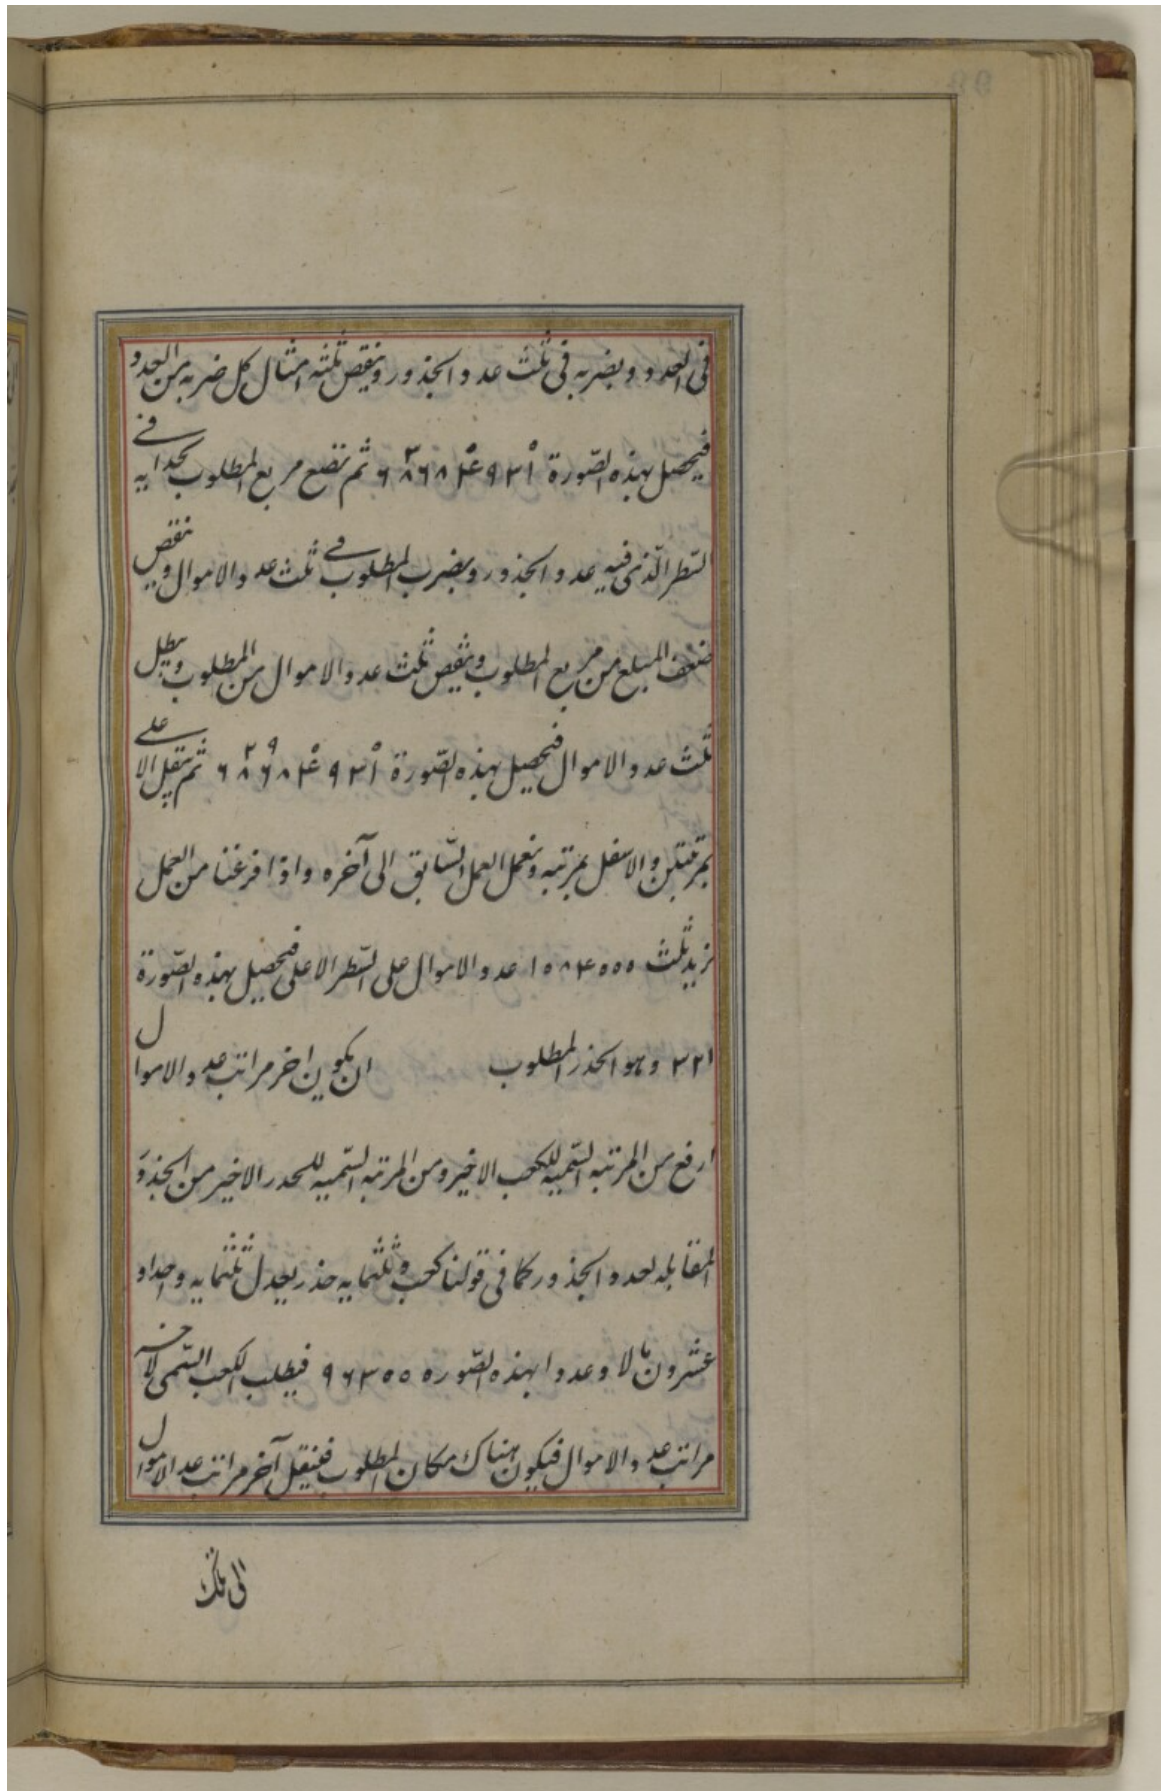 فى العدد ونضربه فى ثلث عدد الجذور وننقص ثلثه امثال كل ضربه من العدد
فيحصل بهذه الصّورة ثم نضع مربع المطلوب بحذائه فے
السّطر الّذى فيه عدد الجذور ونضرب المطلوب فے ثلث عدد الاموال وننقص
ضعف المبلغ من مربع المطلوب وننقص ثلث عدد الاموال من المطلوب ويبطل
ثلث عدد الاموال فيحصل بهذه الصّورة ثم ننقل الاعلے
بمرتبتين والاسفل بمرتبه ونعمل العمل السّابق الى آخره واذا فرغنا من العمل
نزيد ثلث عدد الاموال على السّطر الاعلى فيحصل بهذه الصّورة
٣٢١ وهو الجذر المطلوب ان يكون اخر مراتب عدد الاموال
ارفع من المرتبه السّميه للكعب الاخير ومن المرتبه السّميه للجذر الاخير من الجذور
المقابله لعدد الجذور كما فى قولنا كعب وثلثمايه جذر يعدل ثلثمايه واحدا و
عشرون مالا وعددا بهذه الصّوره ٩٦٣٥٥ فيطلب الكعب السّمى لاخر
مراتب عدد الاموال فيكون هناك مكان المطلوب فننقل آخر مراتب عدد الاموال
الى تلك